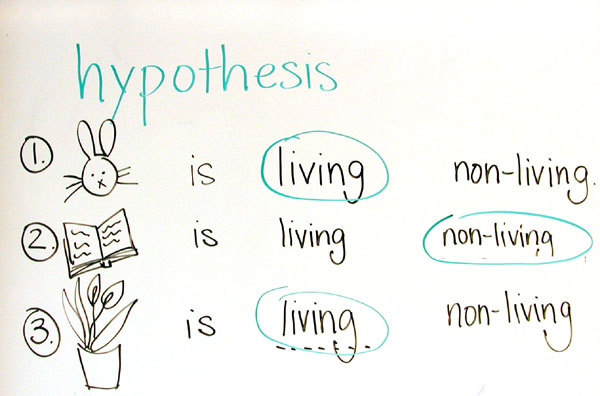 hypothesis
1. is living non-living.
2. is living non-living
3. is living non-living